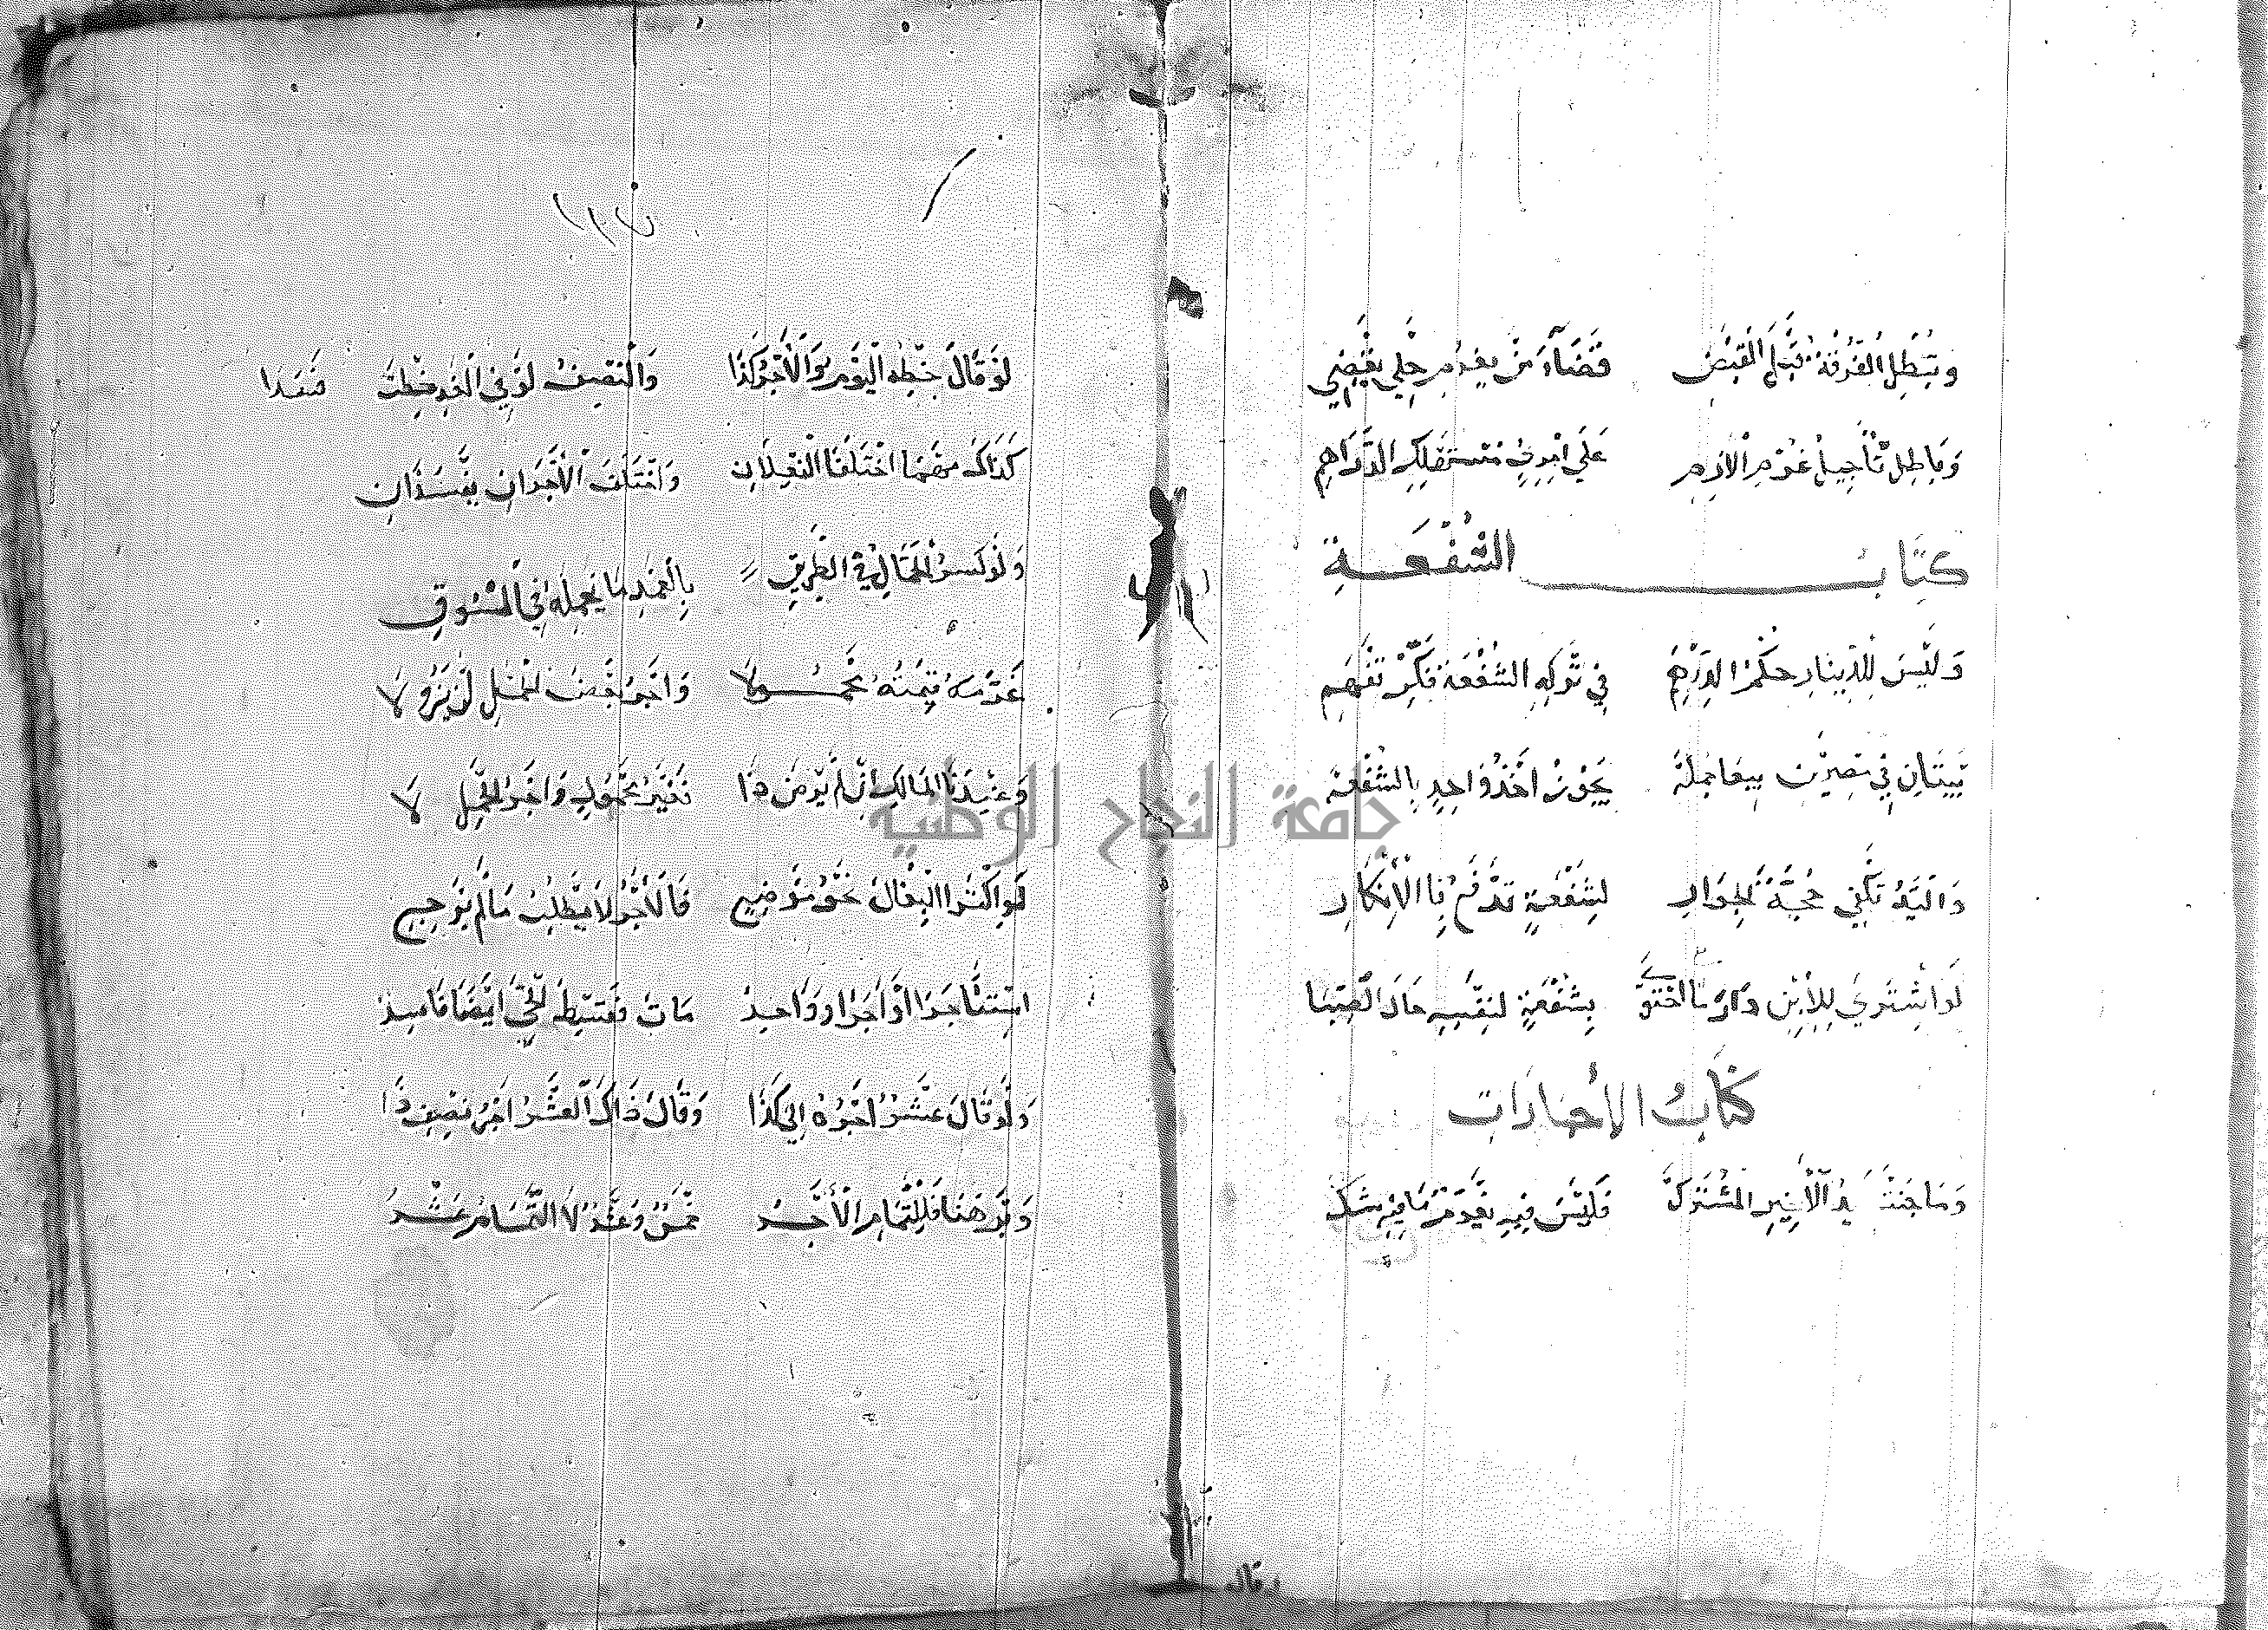 وَتُبْطِلُ الْفُرْقَةُ قَبْلَ الْقَبْضِ قَضَاءَ مَنْ يَغْرَمُ حَلْيٍ يَقْضِي
وَبَاطِلٌ تَأْجِيلُ غُرْمِ الْلَازِمِ عَلَى مُسْتَهْلِكِ الدَّرَاهِمِ
كِتَابُ الشُّفْعَةِ
وَلَيْسَ لِلدِّينَارِ حُكْمُ الدِّرْهَمِ فِي تَرْكِهِ الشُّفْعَةَ فَكِّرْ تَفْهَمِ
بَيْتَانِ فِي مِصْرَيْنِ بِيعَا جُمْلَةْ يَجُوزُ أَخْذُ وَاحِدٍ بِالشُّفْعَةْ
وَالْيَدُ تَكْفِي حُجَّةً لِلْجِوَارِ لِشُفْعَةٍ تُدْفَعُ بِالْإِنْكَارِ
لَوِ اشْتَرَى لِلِابْنِ دَارًا بِشُفْعَةٍ لِنَفْسِهِ حَازَ
كِتَابُ الْإِجَارَاتِ
وَمَا جَنَتْ يَدُ الْأَجِيرِ الْمُشْتَرَكْ فَلَيْسَ فِيهِ مَا فِيهِ شَكْ
وقال
لَوْ قَالَ خِطْهُ الْيَوْمَ وَالْأَجْرُ كَذَا وَالنِّصْفُ لَوْ فِي الْغَدِ خِطْتَ
كَذَاكَ مَهْمَا اخْتَلَفَ الْفِعْلَانِ وَاخْتَلَفَ الْأَجْرَانِ يَفْسُدَانِ
وَلَوْ كَسَرَ الْحَمَّالُ فِي الطَّرِيقِ بِالْعَمْدِ مَا يَحْمِلُهُ فِي السُّوقِ
غَرَّمَهُ قِيمَتَهُ مَحْمُولَا وَأَجْرُ بَعْضِ الْحَمْلِ لَنْ يَزُولَا
وَعِنْدَنَا الْمَالِكُ إِنْ لَمْ يَرْضَ ذَا فَغَيْرُ مَحْمُولٍ وَأَجْرُ الْحَمْلِ لَا
لَوِ اكْتَرَى الْبِغَالَ نَحْوَ مَوْضِعِ فَالْأَجْرُ لَا يُطْلَبُ مَا لَمْ يَرْجِعِ
اسْتَأْجَرَا أَوْ أَجَّرَا وَوَاحِدُ مَاتَ فَقِسْطُ الْحَيِّ أَيْضًا فَاسِدُ
وَلَوْ قَالَ عَشْرٌ أَجْرُهُ إِلَى كَذَا وَقَالَ ذَاكَ الْعَشْرُ أَجْرُ نِصْفِ ذَا
وَبَرْهَنَا فَلِلتَّمَامِ الْأَجْرُ خَمْسٌ وَعَشْرٌ لَا التَّمَامُ عَشْرُ
جامعة النجاح الوطنية